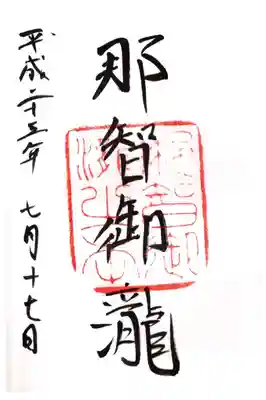 那智御瀧
平成二十三年 七月十七日